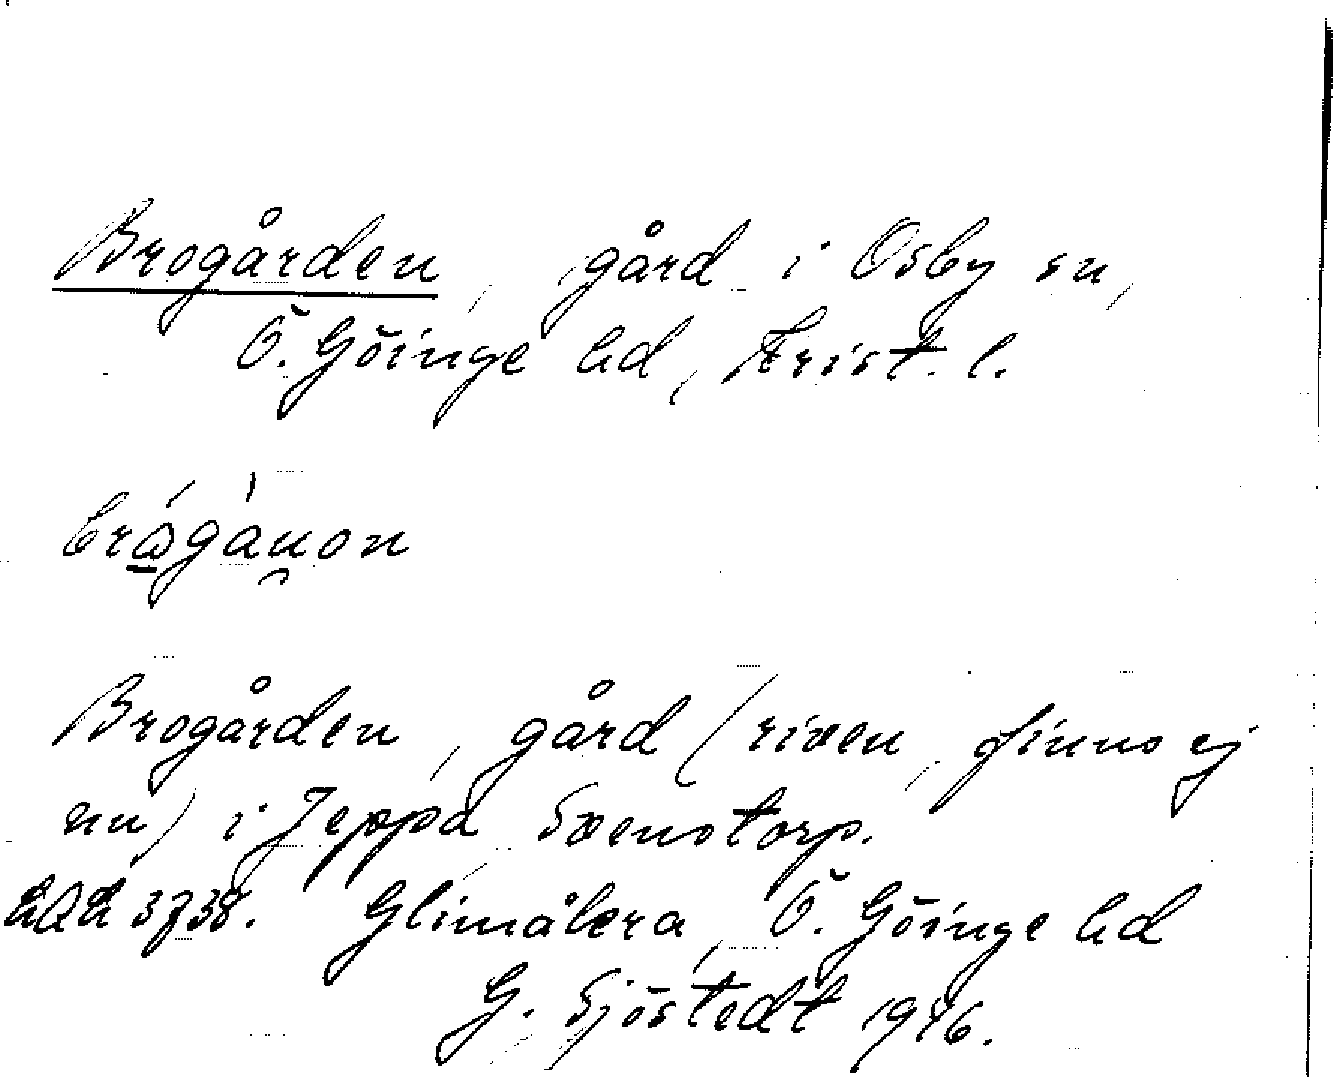 Brogården, gård i Osby sn,
Ö. Göinge hd, Krist. l.
Brogården, gård (riven, finns ej
nu) i Jeppa Svenstorp.
3738. Glimåkra, Ö. Göinge hd
G. Sjöstedt 1946.